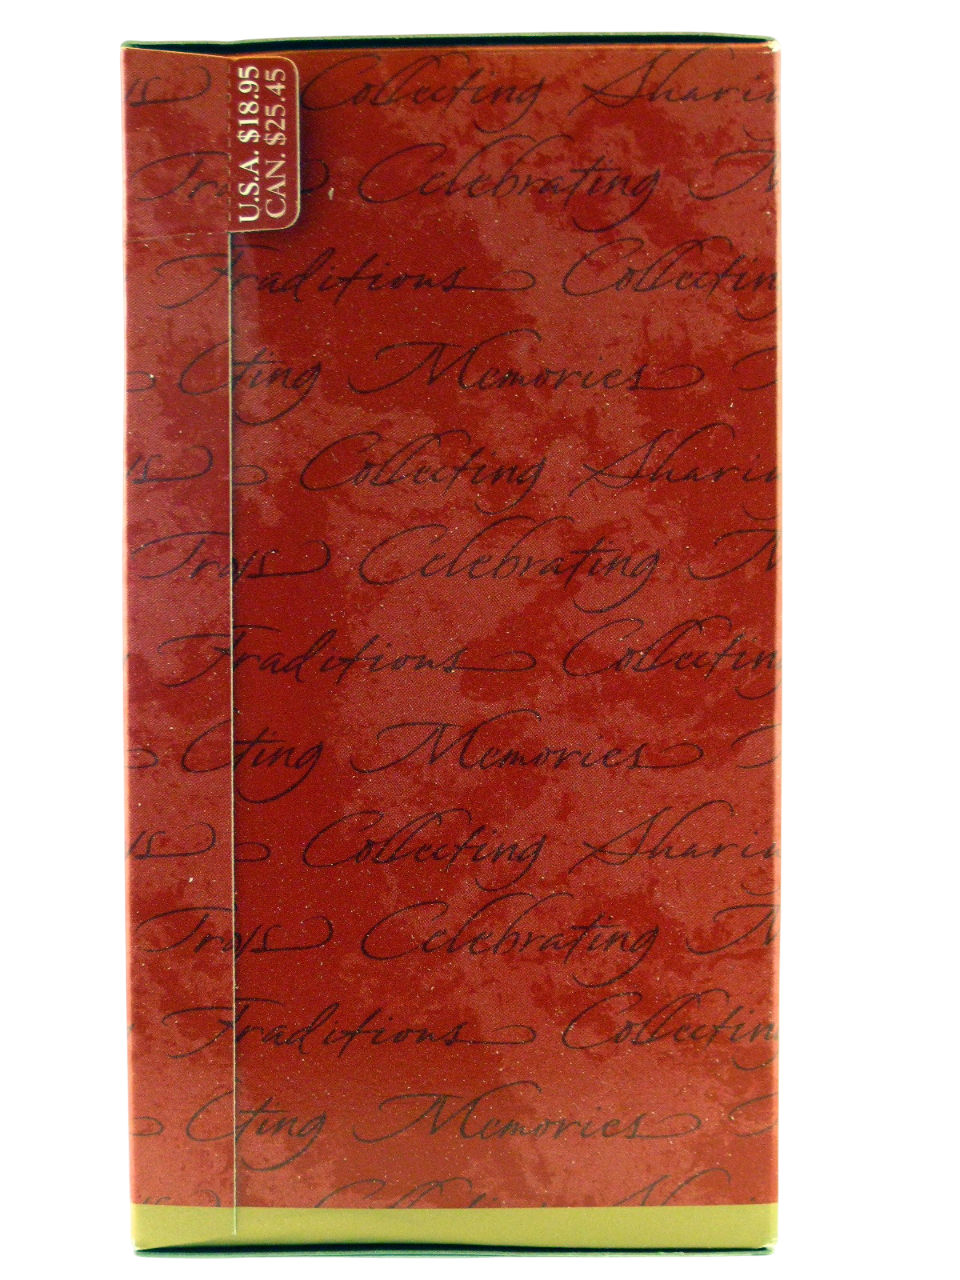 U.S.A. $18.95
CAN. $25.45
Collecting Sharin
Celebrating
Traditions Collectin
ting Memories
Collecting Sharin
Celebrating
Traditions Collectin
ting Memories
Collecting Sharin
Celebrating
Traditions Collectin
ting Memories